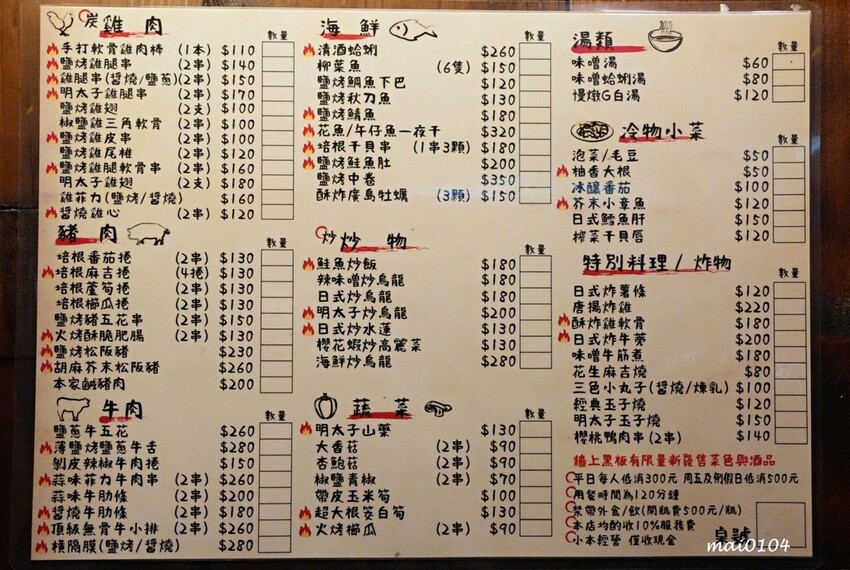 炭 雞肉 數量
手打軟骨雞肉棒 (1本) $110
鹽烤雞腿串 (2串) $140
雞腿串(醬燒/鹽蔥)(2串) $150
明太子雞腿串 (2串) $170
鹽烤雞翅 (2支) $100
椒鹽雞三角軟骨 (2串) $100
鹽烤雞皮串 (2串) $100
鹽烤雞尾椎 (2串) $120
鹽烤雞腿軟骨串 (2串) $160
明太子雞翅 (2支) $180
雞菲力(鹽燒/醬燒) $160
醬燒雞心 (2串) $120
豬肉 數量
培根番茄捲 (2串) $130
培根麻吉捲 (4捲) $130
培根蘆筍捲 (2串) $130
培根櫛瓜捲 (2串) $130
鹽烤豬五花串 (2串) $150
火烤酥脆肥腸 (2串) $130
鹽烤松阪豬 $230
胡麻芥末松阪豬 $260
本家鹹豬肉 $200
牛肉 數量
鹽蔥牛五花 $260
薄鹽烤鹽蔥牛舌 $260
剝皮辣椒牛肉捲 $150
蒜味菲力牛肉串 (2串) $260
蒜味牛肋條 (2串) $200
醬燒牛肋條 (2串) $180
頂級無骨牛小排 (2串) $260
橫隔膜(鹽烤/醬燒) $280
海鮮 數量
清酒蛤蜊 $260
柳葉魚 (6隻) $150
鹽烤鯛魚下巴 $120
鹽烤秋刀魚 $130
鹽烤鯖魚 $180
花魚/午仔魚一夜干 $320
培根干貝串 (1串3顆) $180
鹽烤鮭魚肚 $200
鹽烤中卷 $350
酥炸廣島牡蠣 (3顆) $150
炒 炒物 數量
鮭魚炒飯 $180
辣味噌炒烏龍 $180
日式炒烏龍 $180
明太子炒烏龍 $200
日式炒水蓮 $130
櫻花蝦炒高麗菜 $130
海鮮炒烏龍 $280
蔬菜 數量
明太子山藥 $130
大香菇 (2串) $90
杏鮑菇 (2串) $90
椒鹽青椒 (2串) $70
帶皮玉米筍 $100
超大根筊白筍 $130
火烤櫛瓜 (2串) $90
湯類 數量
味噌湯 $60
味噌蛤蜊湯 $80
慢燉G白湯 $120
冷物小菜 數量
泡菜/毛豆 $50
柚香大根 $50
冰釀番茄 $100
芥末小章魚 $120
日式鱈魚肝 $150
榨菜干貝唇 $150
特別料理/炸物 數量
日式炸薯條 $120
唐揚炸雞 $220
酥炸雞軟骨 $180
日式炸牛蒡 $200
味噌牛筋煮 $180
花生麻吉燒 $80
三色小丸子(醬燒/煉乳) $100
經典玉子燒 $120
明太子玉子燒 $150
櫻桃鴨肉串(2串) $140
牆上黑板有限量新發售菜色與酒品
平日每人低消300元 周五及例假日低消500元
用餐時間為120分鐘
禁帶外食/飲(開瓶費500元/瓶)
本店均酌收10%服務費
小本經營 僅收現金
桌號
mai0104